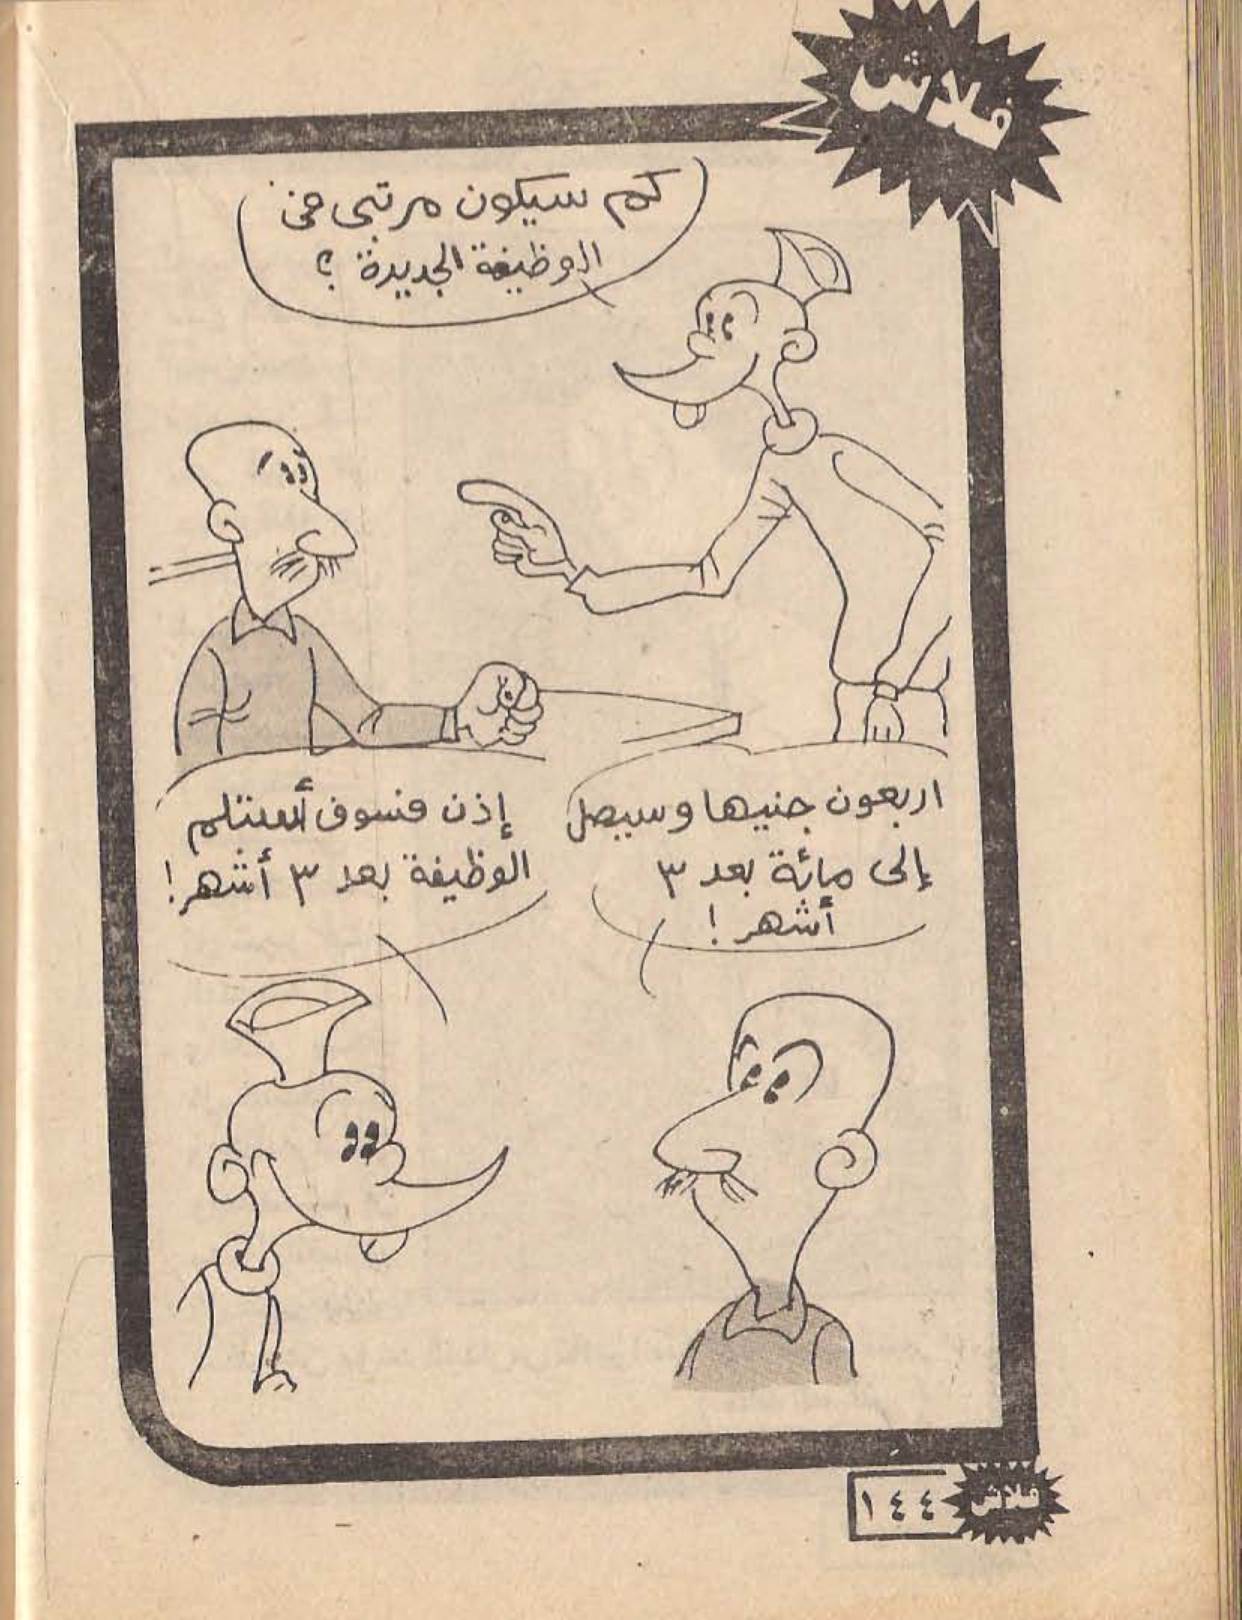 فلاش
كم سيكون مرتبى فى
الوظيفة الجديدة ؟
اربعون جنيها وسيصل
إلى مائة بعد ٣
أشهر !
إذن فسوف أستلم
الوظيفة بعد ٣ أشهر !
١٤٤
فلاش